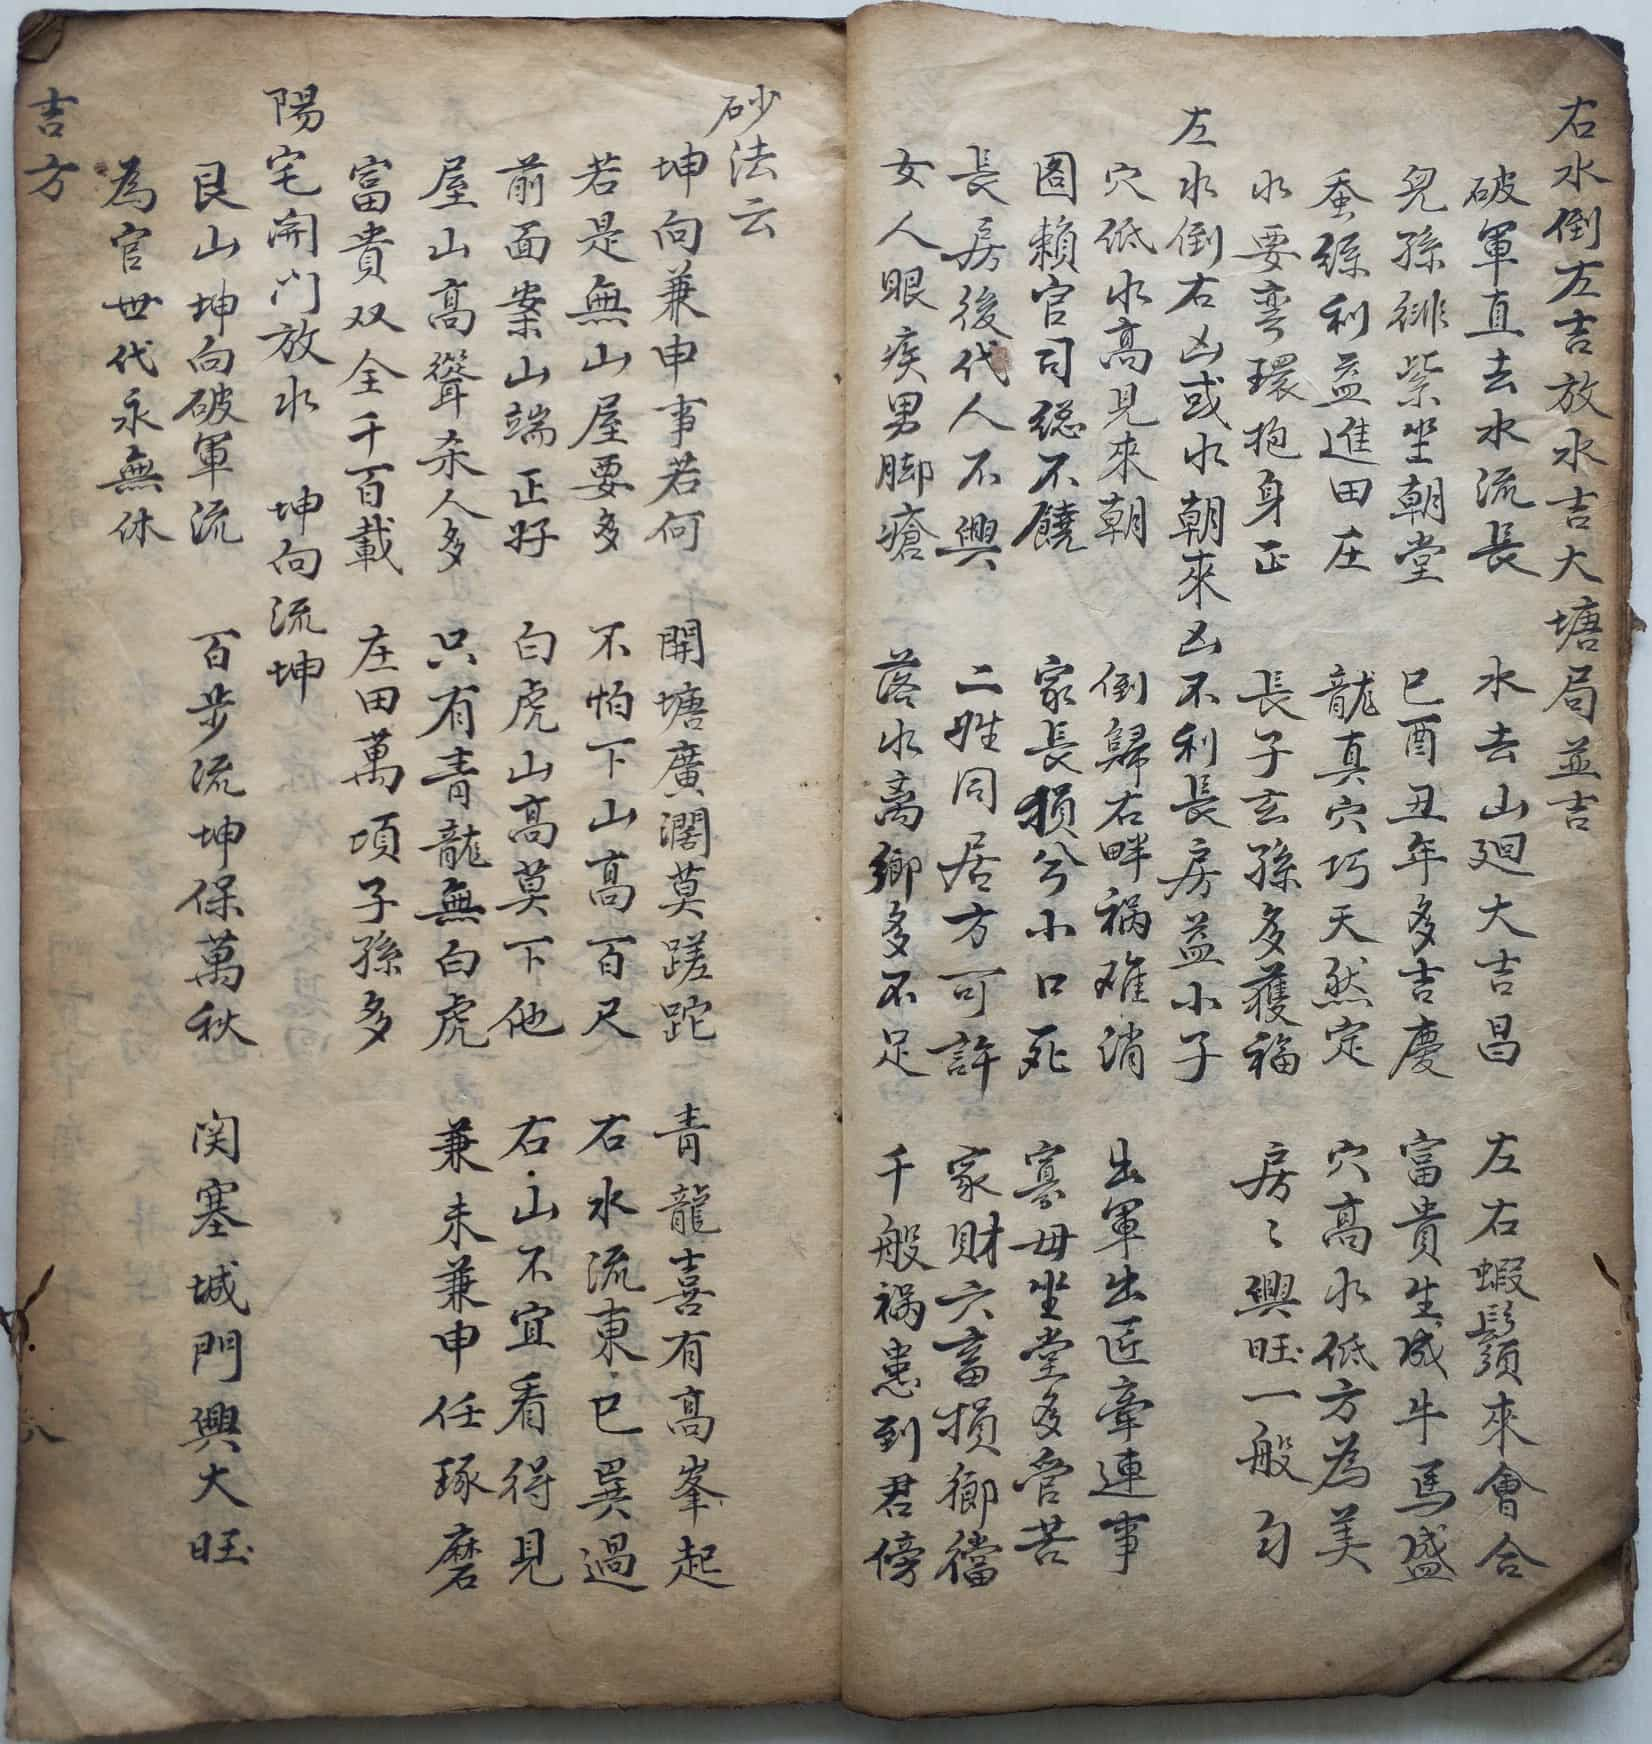 右水倒左吉放水吉大塘局並吉
破軍直去水流長 水去山廻大吉昌 左右蝦鬚來會合
兒孫緋紫坐朝堂 巳酉丑年多吉慶 富貴生成牛馬盛
蚕絲利益進田庄 龍真穴巧天然定 穴高水低方為美
水要弯環抱身正 長子玄孫多獲福 房〻興旺一般匀
左水倒右凶或水朝來凶不利長房益小子
穴低水高見來朝 倒歸右畔禍难消 出軍出匠牽連事
圖賴官司總不饒 家長損兮小口死 寡母坐堂多管苦
長房後代人不興 二姓同居方可許 家財六畜損鄉
女人眼疾男脚瘡 落水离鄉多不足 千般禍患到君傍
砂法云
坤向兼申事若何 開塘廣濶莫蹉跎 青龍喜有高峯起
若是無山屋要多 不怕下山高百尺 右水流東巳巽過
前面案山端正好 白虎山高莫下他 右山不宜看得見
屋山高聳杀人多 只有青龍無白虎 兼未兼申任琢磨
富貴双全千百載 庄田萬項子孫多
陽宅開门放水 坤向流坤
艮山坤向破軍流 百步流坤保萬秋 関塞城門興大旺
為官世代永無休
吉方
八